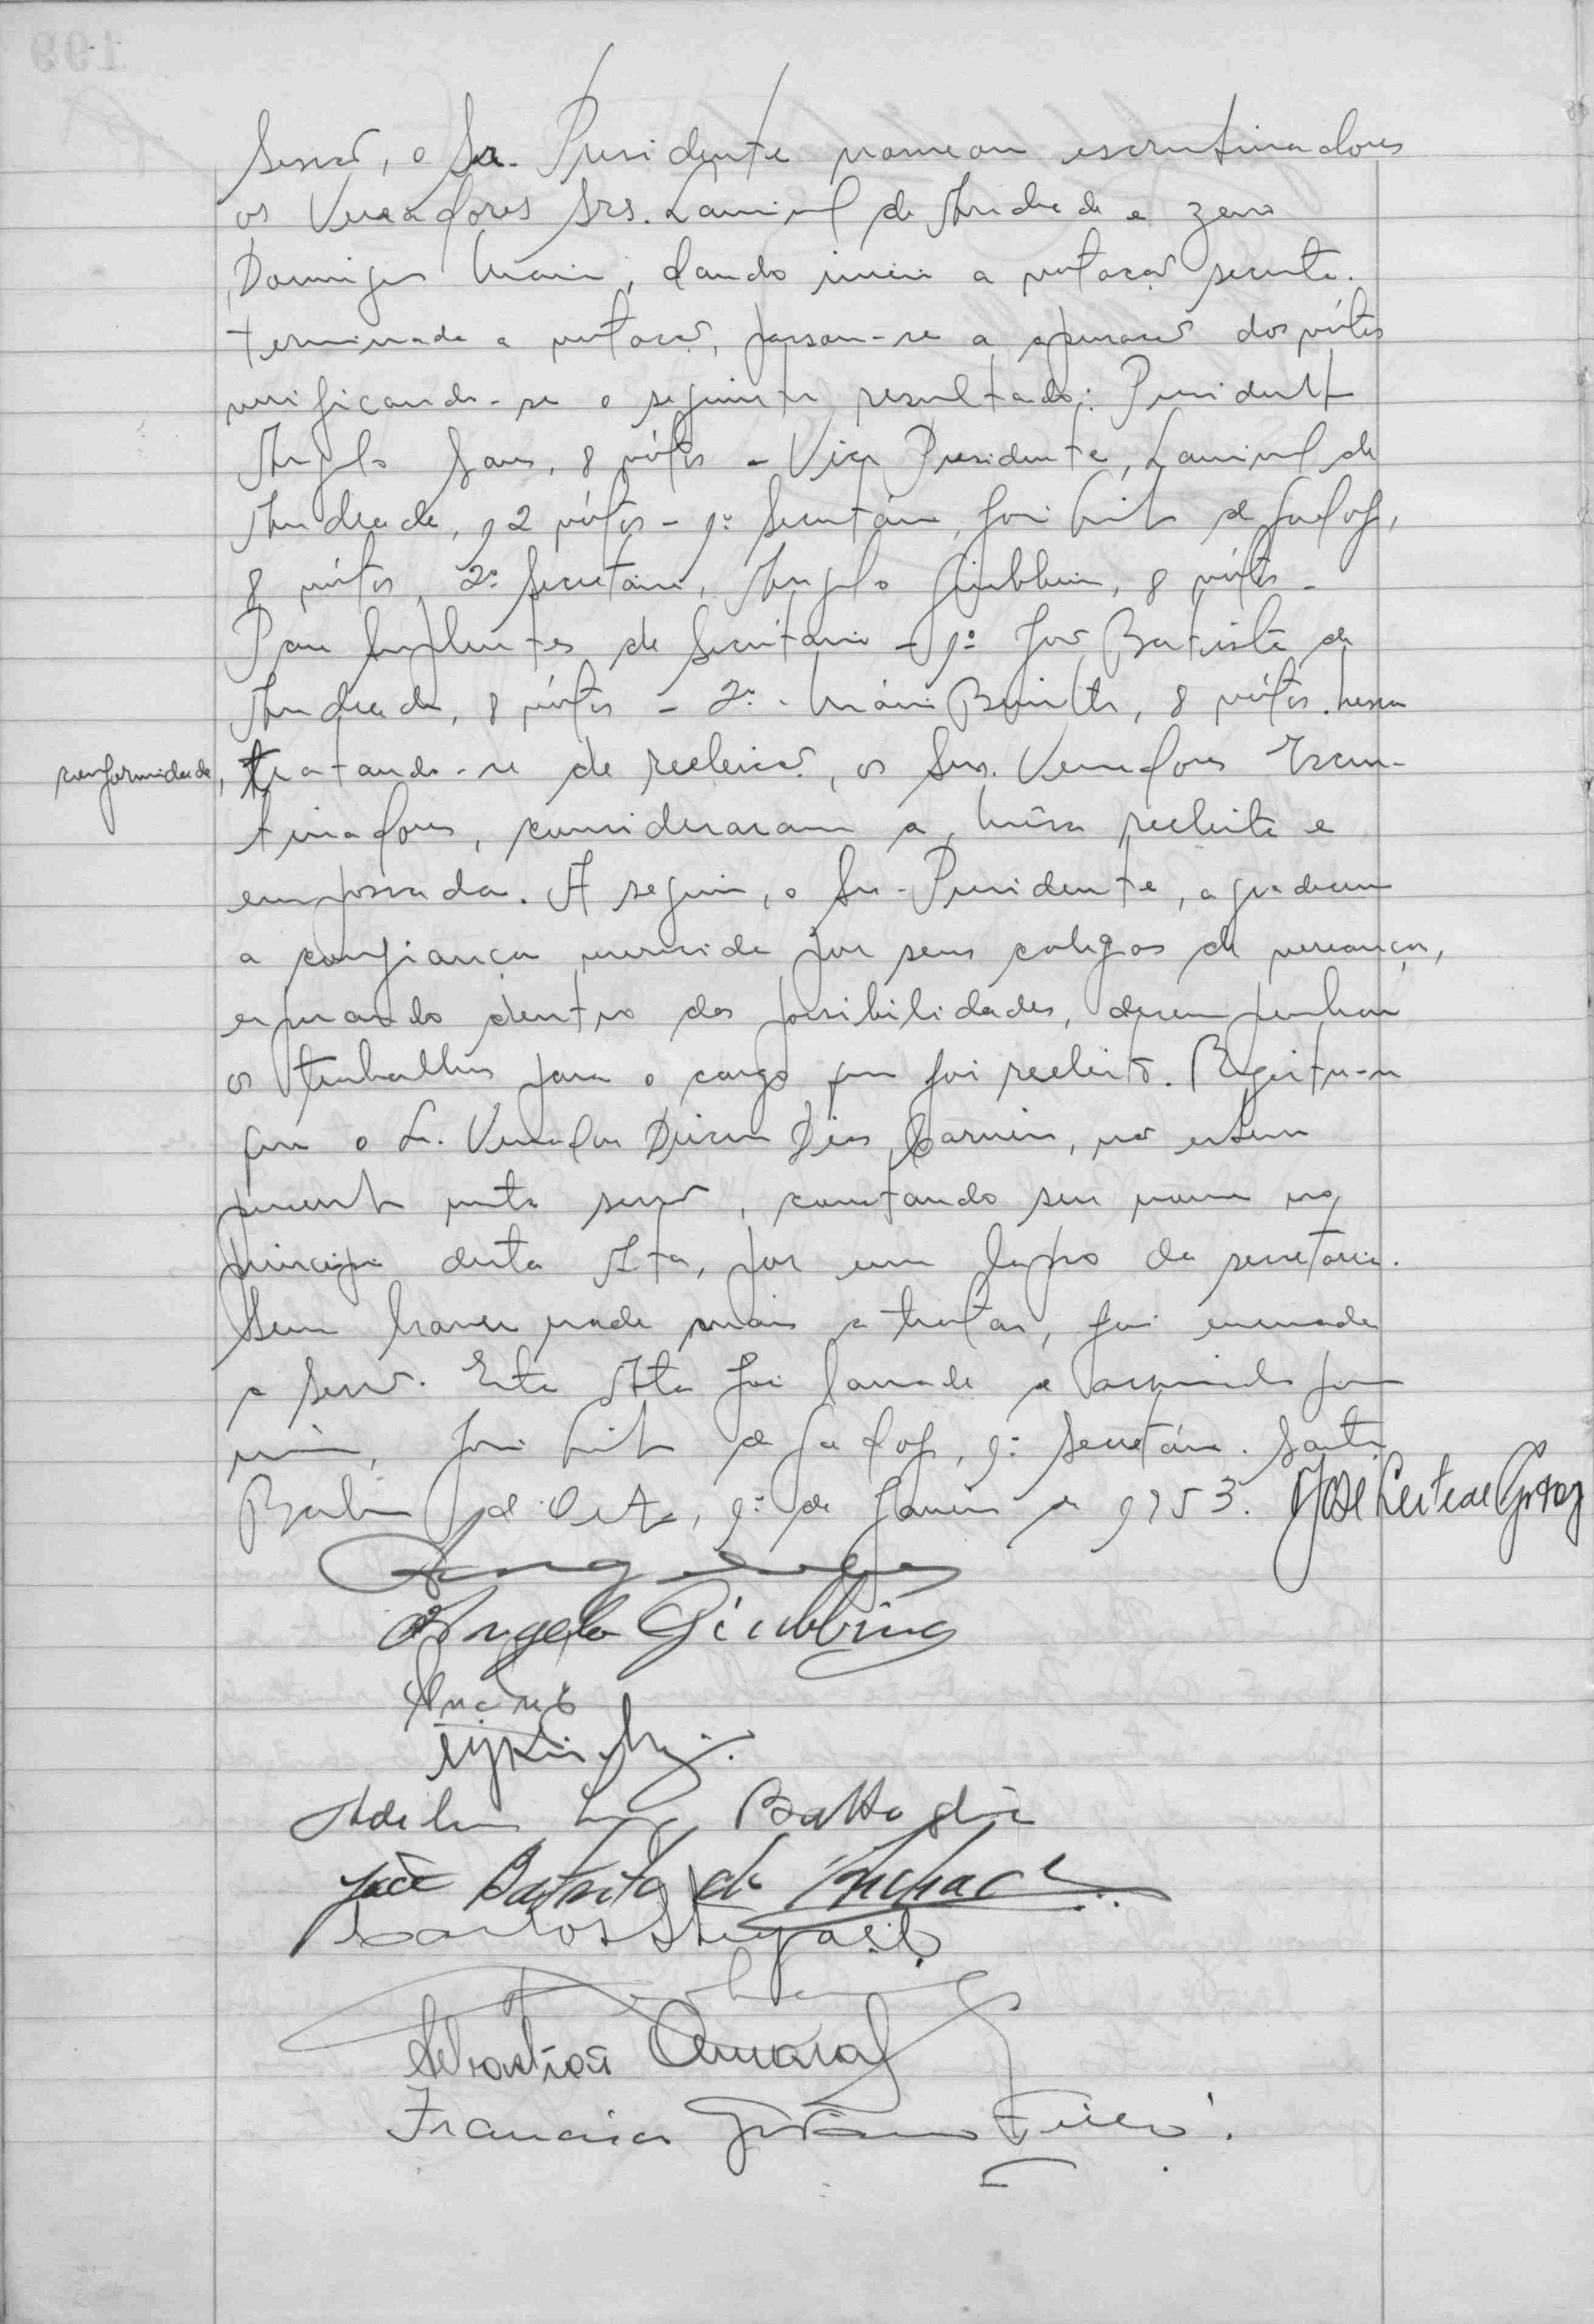 Sessão, o Sr. Presidente nomeou escrutinadores
os Vereadores Srs. Laurival de Andrade e Zeno
Domingos Maia, dando inicio a votação secreta.
terminada a votação, passou-se a apuração dos vótos
verificando-se o seguinte resultado: Presidente
Angelo Sans, 8 vótos - Vice Presidente, Laurival de
Andrade, 12 vótos - 1º Secretário, José Leite de Godoy,
8 vótos, 2º Secretário, Angelo Giubbina, 8 vótos -
Para Suplentes de Secretário - 1º José Batista de
Andrade, 8 vótos - 2º - Mário Boni, 8 vótos. Nessa
conformidade, tratando-se de reeleição, os Srs. Vereadores Escru-
tinadores, consideraram a Mêsa reeleita e
empossada. A seguir, o Sr. Presidente, agradeceu
a confiança merecida por seus colegas de vereança,
esperando dentro das possibilidades, desempenhar
os trabalhos para o cargo que foi reeleito. Registra-se
que o Sr. Vereador Dirceu Dias Carneiro, não esteve
presente nesta sessão, constando seu nome no
principio desta Ata, por um lapso da secretaria.
Sem haver nada mais a tratar, foi encerrada
a Sessão. Esta Ata foi lavrada e assinada por
mim, José Leite de Godoy, 1º Secretário. Santa
Barbara d'Oeste, 1º de Janeiro de 1953. José Leite de Godoy
Angelo Giubbina
José Batista de Andrade
Carlos Steagall
Sebastião Amaral
Francisco